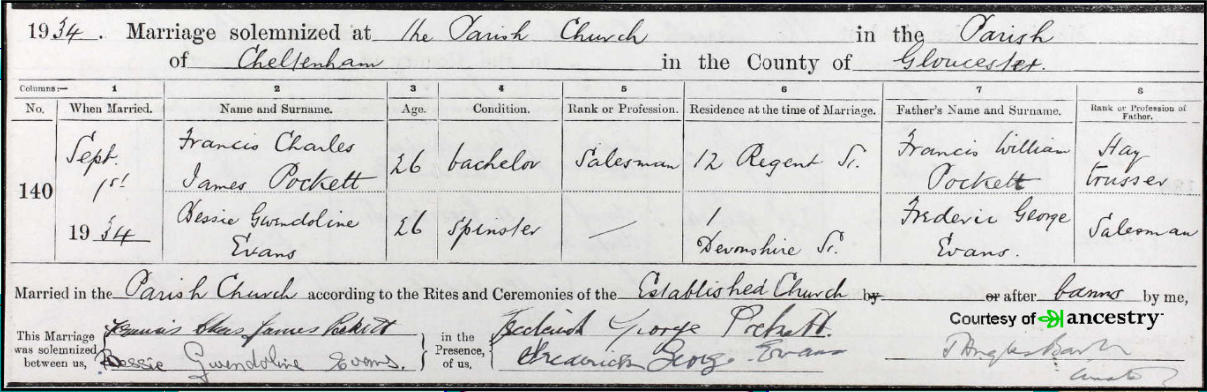 1934. Marriage solemnized at the Parish Church in the Parish
of Cheltenham in the County of Gloucester.
Columns:— 1 2 3 4 5 6 7 8
No. When Married. Name and Surname. Age. Condition. Rank or Profession. Residence at the time of Marriage. Father's Name and Surname. Rank or Profession of Father.
140 Sept. 1st 1934 Francis Charles James Pockett 26 bachelor Salesman 12 Regent St. Francis William Pockett Hay trusser
Bessie Gwendoline Evans 26 Spinster — 1 Devonshire St. Frederic George Evans. Salesman
Married in the Parish Church according to the Rites and Ceremonies of the Established Church by or after banns by me,
This Marriage was solemnized between us, Francis Chas James Pockett
Bessie Gwendoline Evans.
in the Presence of us, Frederick George Pockett.
Frederick George Evans
Courtesy of ancestry